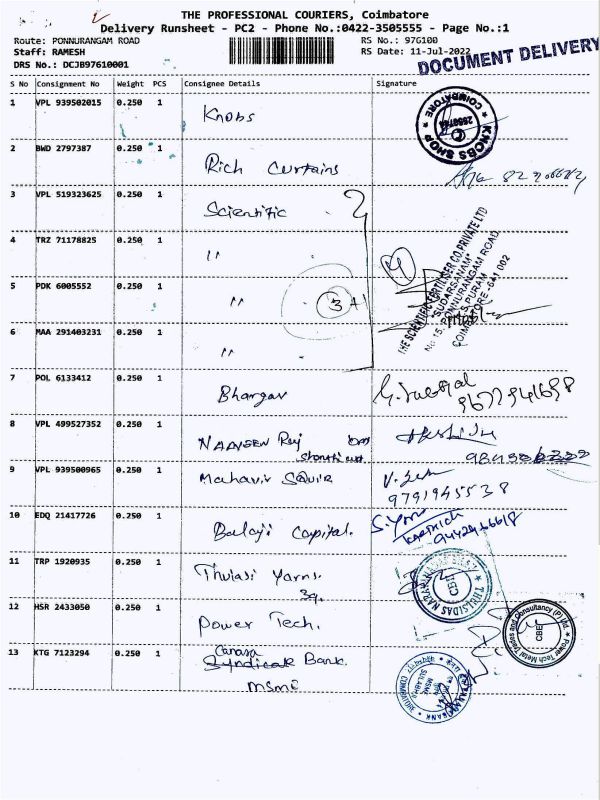 THE PROFESSIONAL COURIERS, Coimbatore
Delivery Runsheet - PC2 - Phone No.:0422-3505555 - Page No.:1
Route: PONNURANGAM ROAD
RS No.: 97G100
Staff: RAMESH
RS Date: 11-Jul-2022
DRS No.: DCJB97610001
DOCUMENT DELIVERY
S No Consignment No Weight PCS Consignee Details Signature
1 VPL 939502015 0.250 1 Knobs
KNOBS SHOP COIMBATORE
2 BWD 2797387 0.250 1 Rich Curtains
3 VPL 519323625 0.250 1 Scientific
4 TRZ 71178825 0.250 1 "
5 PDK 6005552 0.250 1 "
6 MAA 291403231 0.250 1 "
THE SCIENTIFIC FERTILISER CO PRIVATE LTD
"SUDARSANAM"
No 15, PONNURANGAM ROAD,
R.S. PURAM
COIMBATORE-641 002
7 POL 6133412 0.250 1 Bhargav
9677941698
8 VPL 499527352 0.250 1 NAAVEEN Raj
9 VPL 939500965 0.250 1 Mahavir Squir
9791945538
10 EDQ 21417726 0.250 1 Balaji Capital.
KARTHICK
11 TRP 1920935 0.250 1 Thulasi Yarns.
CBE
12 HSR 2433050 0.250 1 Power Tech.
CBE
13 KTG 7123294 0.250 1 Canara
Syndicate Bank.
MSME